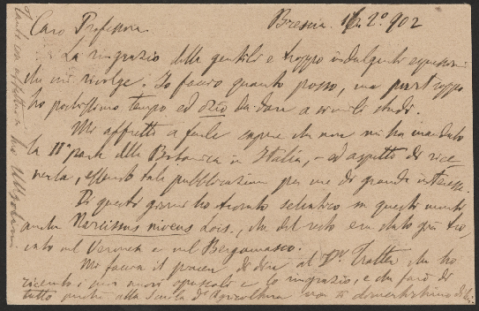 Brescia 1/2° 902
Caro Professore
La ringrazio delle gentili e troppo indulgenti espressioni
che mi rivolge. Io faccio quanto posso, ma purtroppo
ho pochissimo tempo ed ozio da dare a simili studi.
Mi affretto a farle sapere che non mi ha mandato
la IIª parte della Botanica in Italia, ed aspetto di rice
verla, essendo tale pubblicazione per me di grande interesse.
Di questi giorni ho trovato selvatico in questi monti
anche Narcissus niveus Lois., che del resto era dato già tro
vato nel Veronese e nel Bergamasco.
Mi faccia il piacere di dire al Dr. Trotter che ho
ricevuto i suoi nuovi opuscoli e lo ringrazio, e che farò di
tutto perchè alla Scuola d'Agricoltura non si dimentichino di